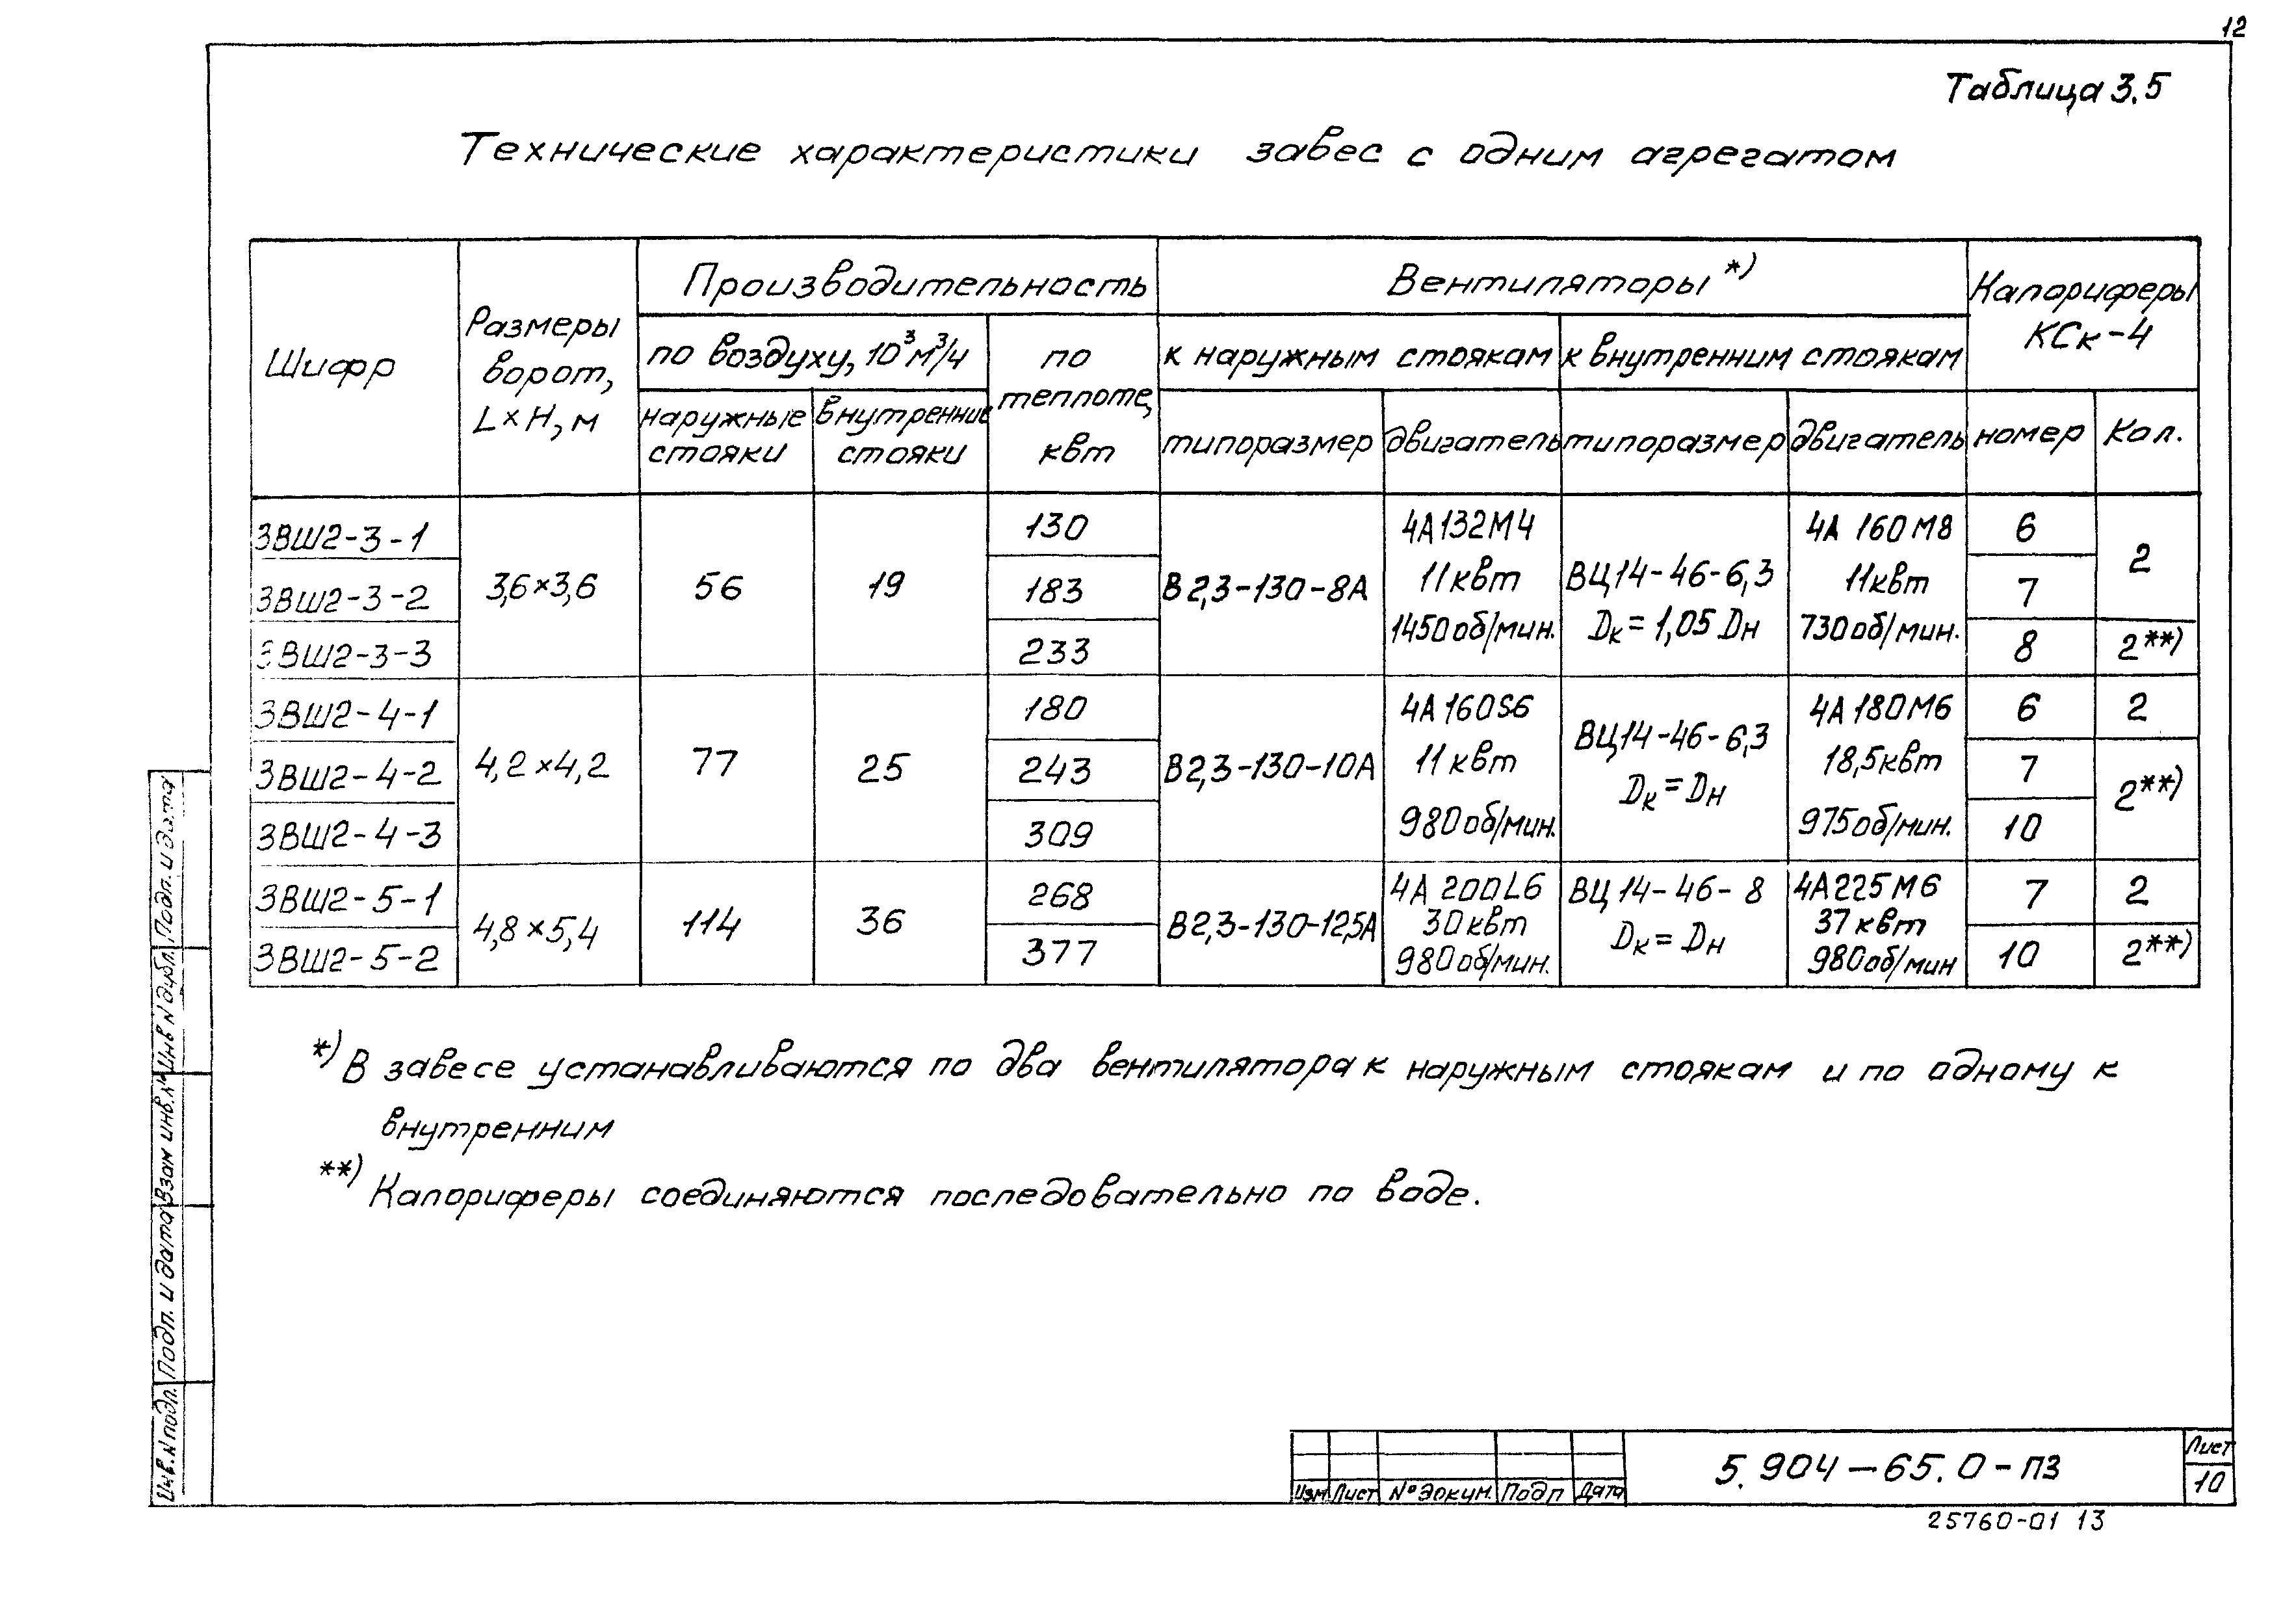 12
Таблица 3.5
Технические характеристики завес с одним агрегатом
Шифр
Размеры ворот, L×H, м
Производительность
Вентиляторы *)
Калориферы КСк-4
по воздуху, 10³м³/ч
по теплоте, квт
к наружным стоякам
к внутренним стоякам
наружные стояки
внутренние стояки
типоразмер
двигатель
типоразмер
двигатель
номер
Кол.
ЗВШ2-3-1
ЗВШ2-3-2
ЗВШ2-3-3
3,6×3,6
56
19
130
183
233
В2,3-130-8А
4А132М4
11квт
1450об/мин.
ВЦ14-46-6,3
Dк=1,05 Dн
4А 160М8
11квт
730об/мин.
6
7
8
2
2**)
ЗВШ2-4-1
ЗВШ2-4-2
ЗВШ2-4-3
4,2×4,2
77
25
180
243
309
В2,3-130-10А
4А160S6
11квт
980об/мин.
ВЦ14-46-6,3
Dк=Dн
4А180М6
18,5квт
975об/мин.
6
7
10
2
2**)
ЗВШ2-5-1
ЗВШ2-5-2
4,8×5,4
114
36
268
377
В2,3-130-12,5А
4А 200L6
30квт
980об/мин.
ВЦ14-46-8
Dк=Dн
4А225М6
37квт
980об/мин
7
10
2
2**)
*) В завесе устанавливаются по два вентилятора к наружным стоякам и по одному к
внутренним
**) Калориферы соединяются последовательно по воде.
Подп. и дата
Инв N дубл.
Взам инв.N
Подп. и дата
Инв.N подл.
Изм Лист N° докум. Подп Дата
5.904-65.0-ПЗ
Лист
10
25760-01 13